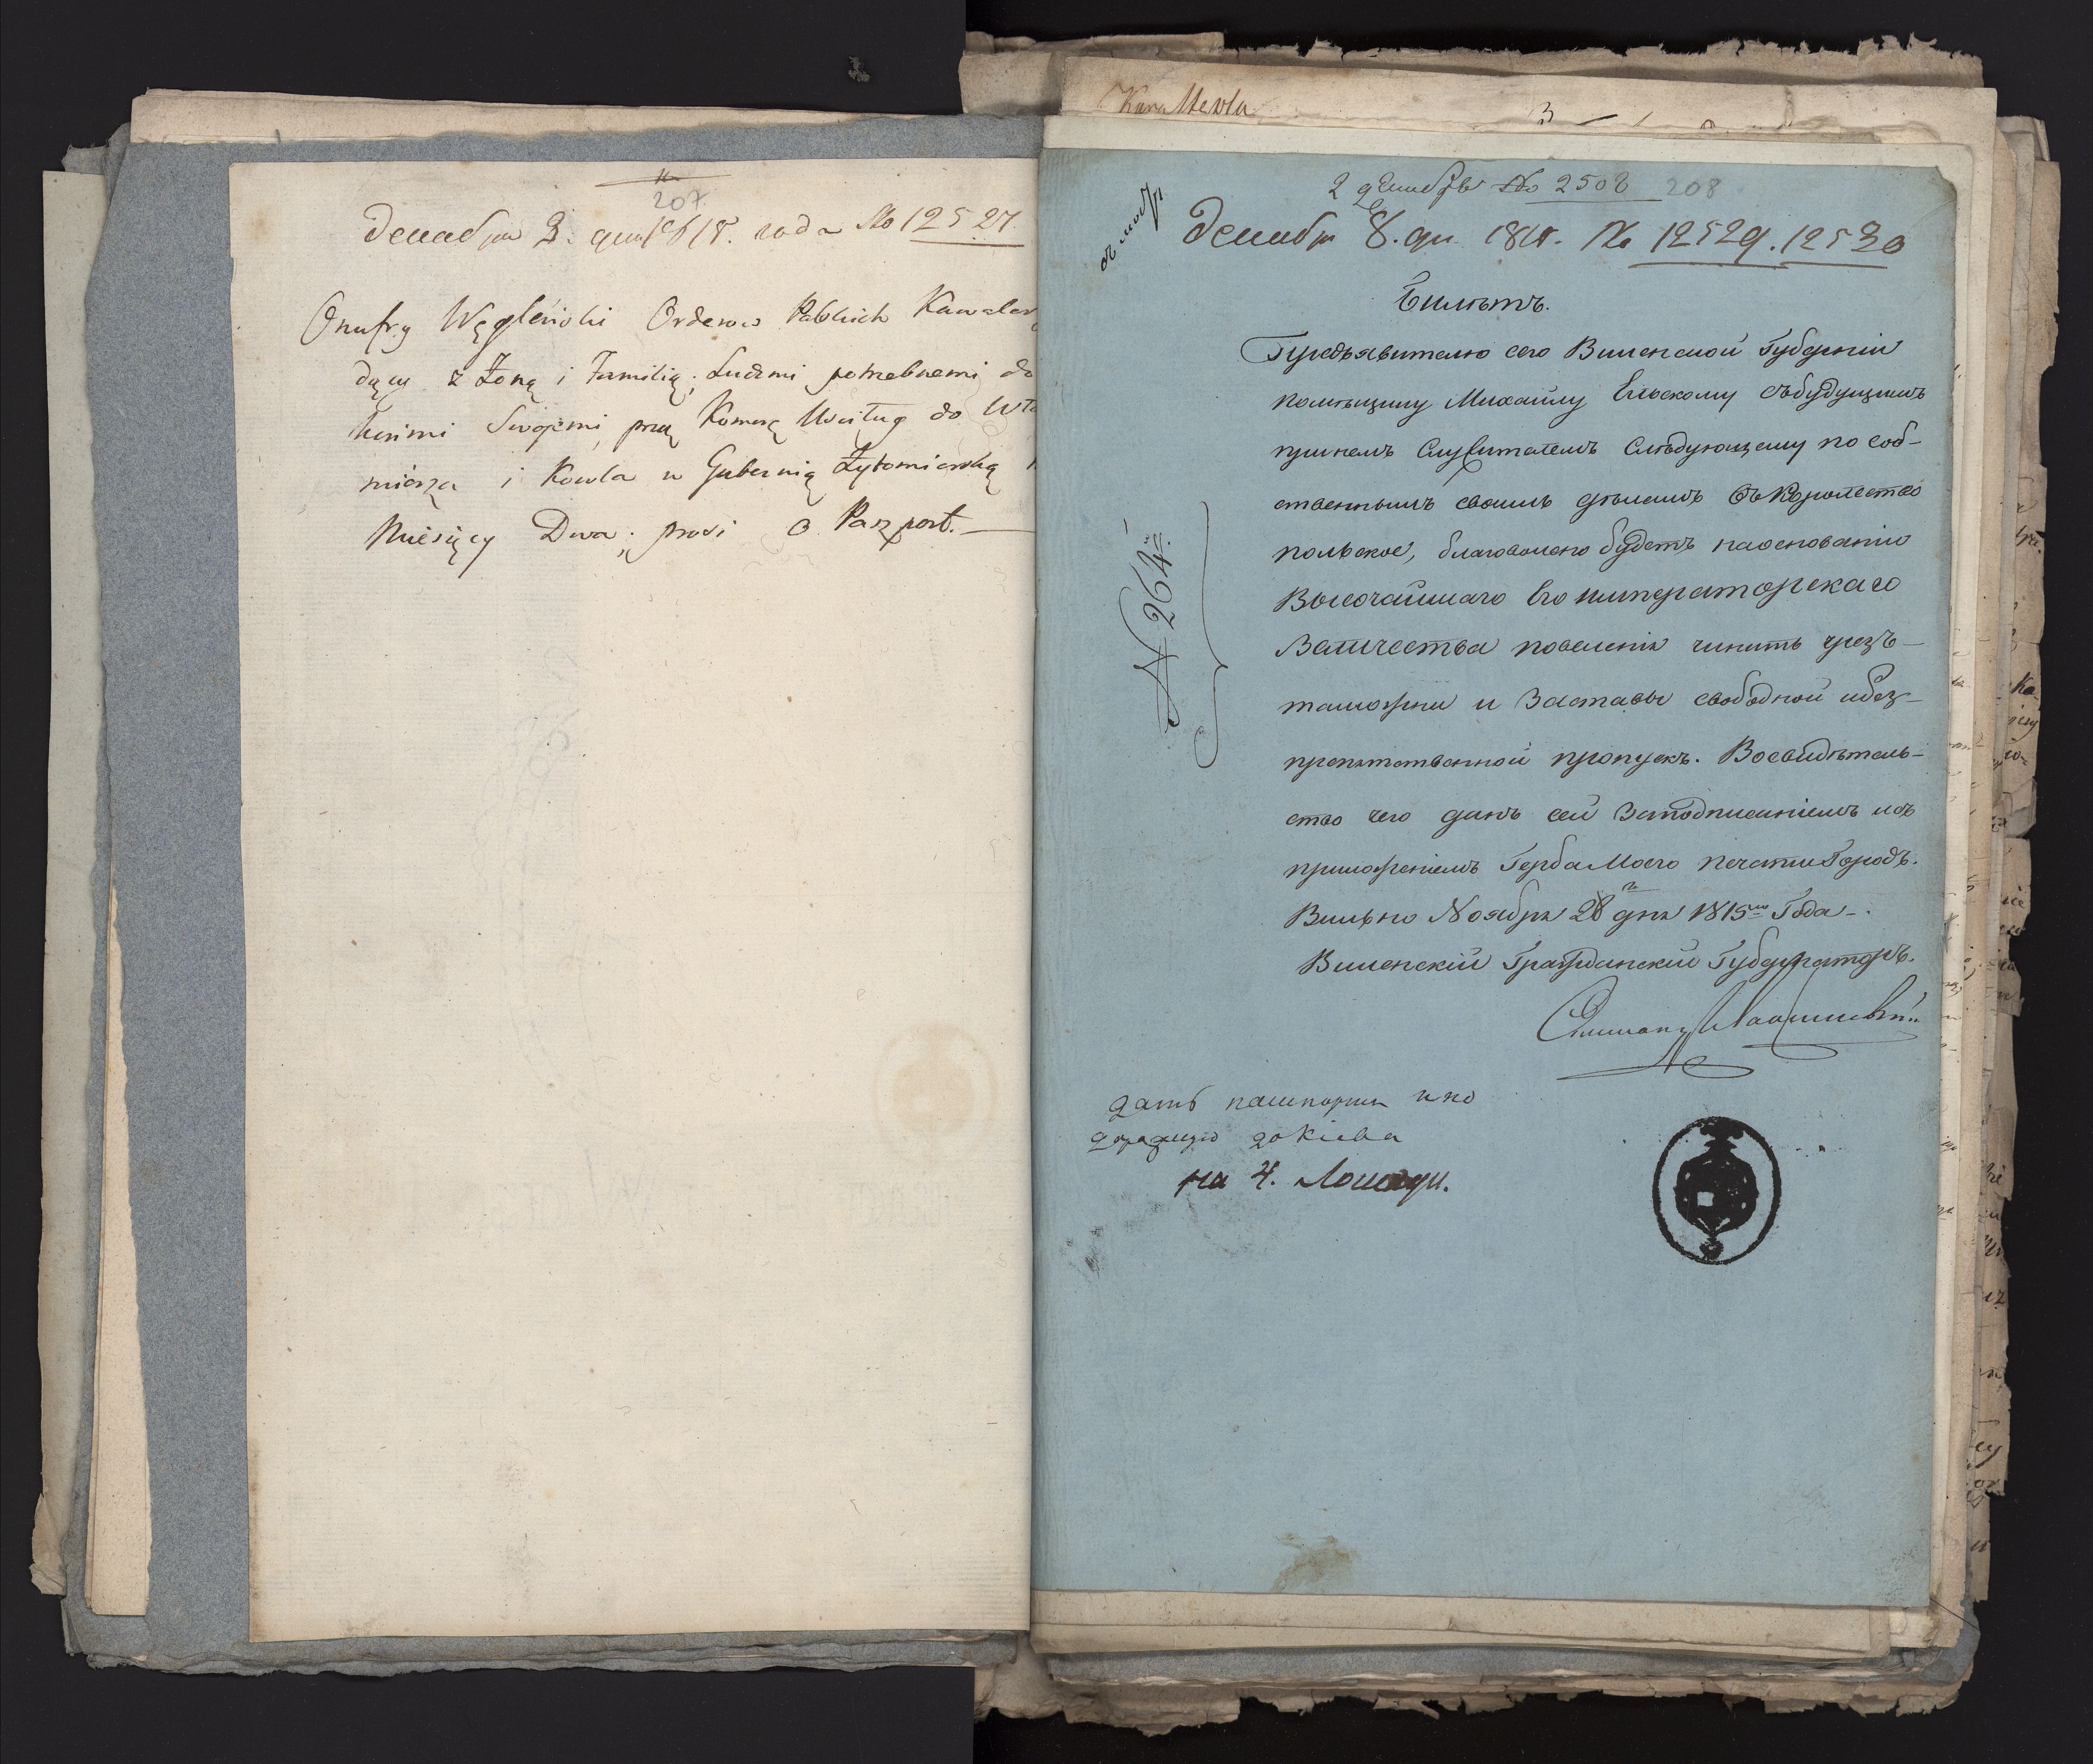 207
Декабря 3. дня 1815. года № 12527.
Onufry Węgleński Orderow Polskich Kawaler
dący z Żoną i Familią, Ludzmi potrzebnemi do
końmi Swojemi przez Komorę Uściług do Wło
mierza i Kowla w Gubernią Żytomierską
Miesięcy Dwa; prosi o Paszport.
2 декабря № 2508 208
Декабря 8. дн. 1815. № 12529. 12530
Билѣтъ.
Предъявителю сего Виленской Губерніи
помѣщику Михаилу Ельскому съ будущимъ
принемъ служителемъ слѣдующему по соб-
ственнымъ своимъ дѣламъ въ Королество
польское, благоволено будетъ на основаніи
Высочайшаго Его императорскаго
Величества повеленія чинить чрезъ-
таможни и заставы свободной ибез-
препятственной пропускъ. Восвидѣтель-
ство чего данъ сей заподписаніемъ исъ
приложеніемъ Герба Моего печати Городъ.
Вильно Ноября 28 дня 1815го Года.
Виленскій Гражданскій Губернаторъ.
№ 264.
дать пашпортъ и по
дорожную до Кіева
на 4. Лошади.